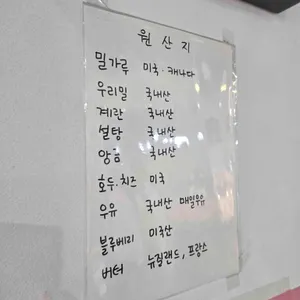 원산지
밀가루 미국·캐나다
우리밀 국내산
계란 국내산
설탕 국내산
앙금 국내산
호두·치즈 미국
우유 국내산 매일우유
블루베리 미국산
버터 뉴질랜드, 프랑스